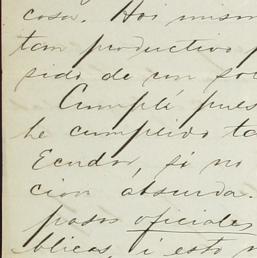 cosa. Hoi mism
tan productivo p
sido de un so
Cumplí pues
he cumplido ta
Ecuador, si no
cion absurda.
pasos oficiales
blicas, i esto n